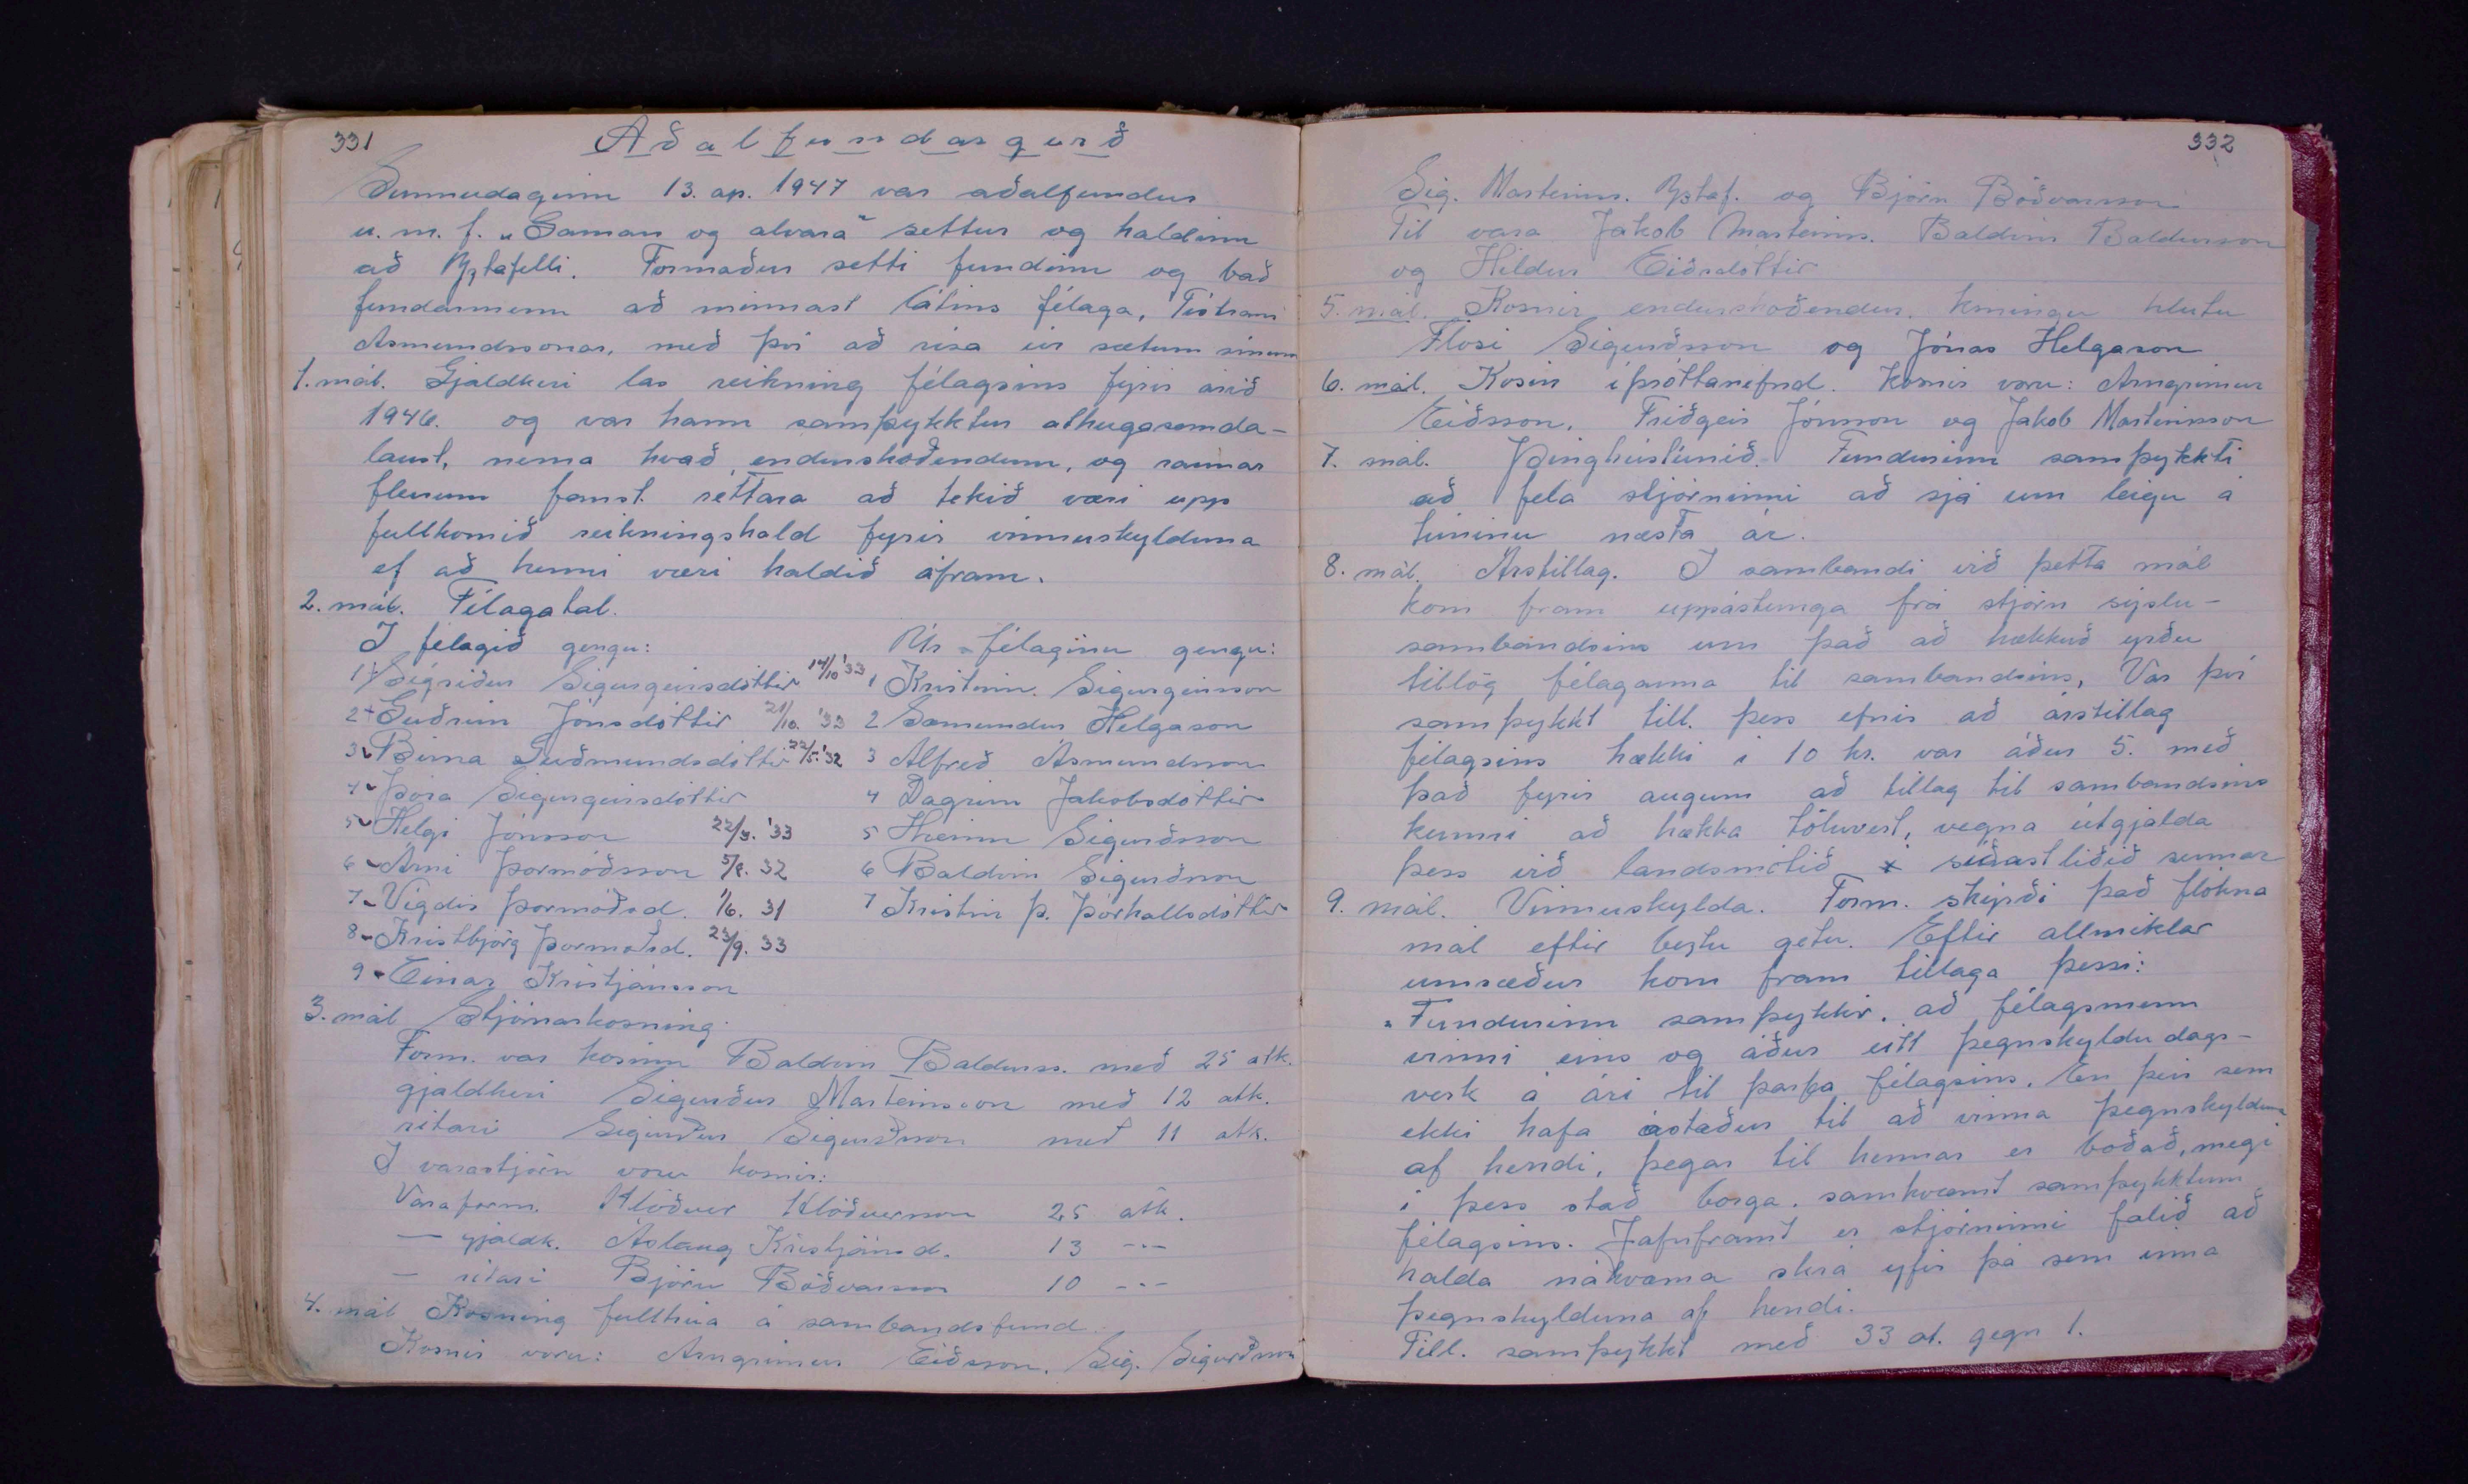 331
Aðalfundargerð
Sunnudaginn 13. ap. 1947 var aðalfundur
u.m.f. „Gaman og alvara" settur og haldinn
að Ystafelli. Formaður setti fundinn og bað
fundarmenn að minnast látins félaga, Tistrams
Asmundssonar, með því að rísa úr sætum sínum
1. mál. Gjaldkeri las reikning félagsins fyrir árið
1946. og var hann samþykktur athugasemda-
laust, nema hvað endurskoðendum, og raunar
flerum fanst réttara að tekið væri upp
fullkomið reikningshald fyrir vinnuskylduna
ef að henni væri haldið áfram.
2. mál. Félagatal.
Í félagið gengu: Úr félaginu gengu:
1 Sigríður Sigurgeirsdóttir 14/10 '33 1 Kristinn Sigurgeirsson
2 Guðrún Jónsdóttir 21/10. '33 2 Sæmundur Helgason
3 Birna Guðmundsdóttir 22/5. '32 3 Alfreð Ásmundsson
4 Þóra Sigurgeirsdóttir 4 Dagrún Jakobsdóttir
5 Helgi Jónsson 22/3. '33 5 Hreinn Sigurðsson
6 Árni Þormóðsson 5/8. 32 6 Baldvin Sigurðsson
7 Vigdís Þormóðsd. 1/6. 31 7 Kristín Þ. Þórhallsdóttir
8 Kristbjörg Þormóðsd. 23/9. 33
9 Einar Kristjánsson
3. mál Stjórnarkosning
Form. var kosinn Baldvin Baldurss. með 25 atk.
gjaldkeri Sigurður Marteinsson með 12 atk.
ritari Sigurður Sigurðsson með 11 atk.
Í varastjórn voru kosnir:
Varaform. Hlöðver Hlöðversson 25 atk.
— gjaldk. Áslaug Kristjánsd. 13 ---
— ritari Björn Böðvarsson 10 ---
4. mál Kosning fulltrúa á sambandsfund.
Kosnir voru: Arngrímur Eiðsson. Sig. Sigurðsson
332
Sig. Marteinss. Ystaf. og Björn Böðvarsson
Til vara Jakob Marteinss. Baldvin Baldursson
og Hildur Eiðsdóttir
5. mál. Kosnir endurskoðendur. kosningu hlutu
Flosi Sigurðsson og Jónas Helgason
6. mál. Kosin íþróttanefnd. Kosnir voru: Arngrímur
Eiðsson, Friðgeir Jónsson og Jakob Marteinsson
7. mál. Þinghústúnið. Fundurinn samþykkti
að fela stjórninni að sjá um leigu á
túninu næsta ár.
8. mál. Árstillag. Í sambandi við þetta mál
kom fram uppástunga frá stjórn sýslu-
sambandsins um það að hækkuð yrðu
tillög félaganna til sambandsins, Var því
samþykkt till. þess efnis að árstillag
félagsins hækki í 10 kr. var áður 5. með
það fyrir augum að tillag til sambandsins
kunni að hækka töluvert, vegna útgjalda
þess við landsmótið x síðastliðið sumar
9. mál. Vinnuskylda. Form. skýrði það flókna
mál eftir beztu getu. Eftir allmiklar
umræður kom fram tillaga þessi:
„Fundurinn samþykkir. að félagsmenn
vinni eins og áður eitt þegnskyldu dags-
verk á ári til þarfa félagsins. En þeir sem
ekki hafa ástæður til að vinna þegnskylduna
af hendi, þegar til hennar er boðað, megi
í þess stað borga. samkvæmt samþykktum
félagsins. Jafnframt er stjórninni falið að
halda nákvæma skrá yfir þá sem vinna
þegnskylduna af hendi.
Till. samþykkt með 33 at. gegn 1.